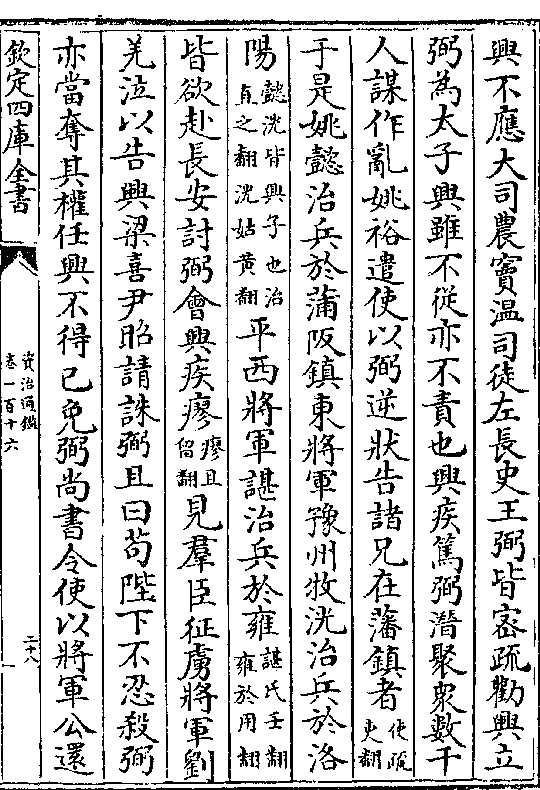 興不應大司農竇温司徒左長史王弼皆密疏勸興立
弼為太子興雖不從亦不責也興疾篤弼潛聚衆數千
人謀作亂姚裕遣使以弼逆狀告諸兄在藩鎮者使疏吏翻
于是姚懿治兵於蒲阪鎮東將軍豫州牧洸治兵於洛
陽懿洸皆興子也治直之翻洸姑黄翻平西將軍諶治兵於雍諶氏壬翻雍於用翻
皆欲赴長安討弼會興疾瘳瘳丑留翻見羣臣征虜將軍劉
羌泣以告興梁喜尹昭請誅弼且曰茍陛下不忍殺弼
亦當奪其權任興不得已免弼尚書令使以將軍公還
欽定四庫全書
資治通鑑
卷一百十六
二十八